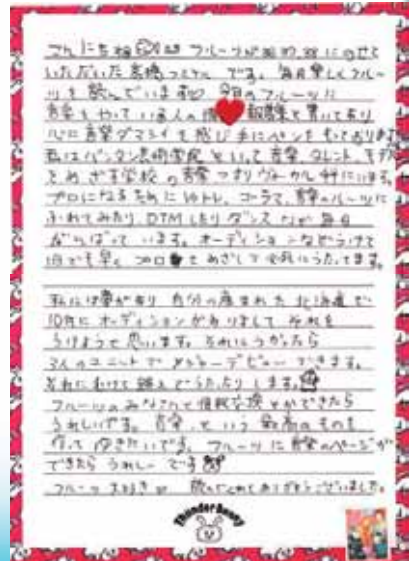 こんにちは フルーツが にのせて
いただいた高橋 です。毎月楽しくフルー
ツを読んでいます 今月のフルーツに
音楽をやっている人の 募集と書いてあり
心に音楽ダマシイを感じ手にペンをもっております
私はバンタン芸術学院といって音楽、タレント、モデル
をめざす学校の音楽つまりヴォーカル科にいます。
プロになるために コーラス、音楽のルーツに
ふれてみたり DTMしたりダンスなど毎日
がんばっています。オーディションなどうけて
1日でも早くプロをめざして必死にうたってます。
私には夢が有り自分の産まれた北海道で
10月にオーディションがありまして それを
うけようと思います。それにうかったら
3人のユニットでメジャーデビューできます。
それにむけて うたったりします。
フルーツのみなさんと情報交換とかできたら
うれしいです。音楽、という最高のものを
作ってゆきたいです。フルーツに音楽のページが
できたらうれしーです
フルーツ大好き 読んでくれてありがとうございました。
Thunder Bunny